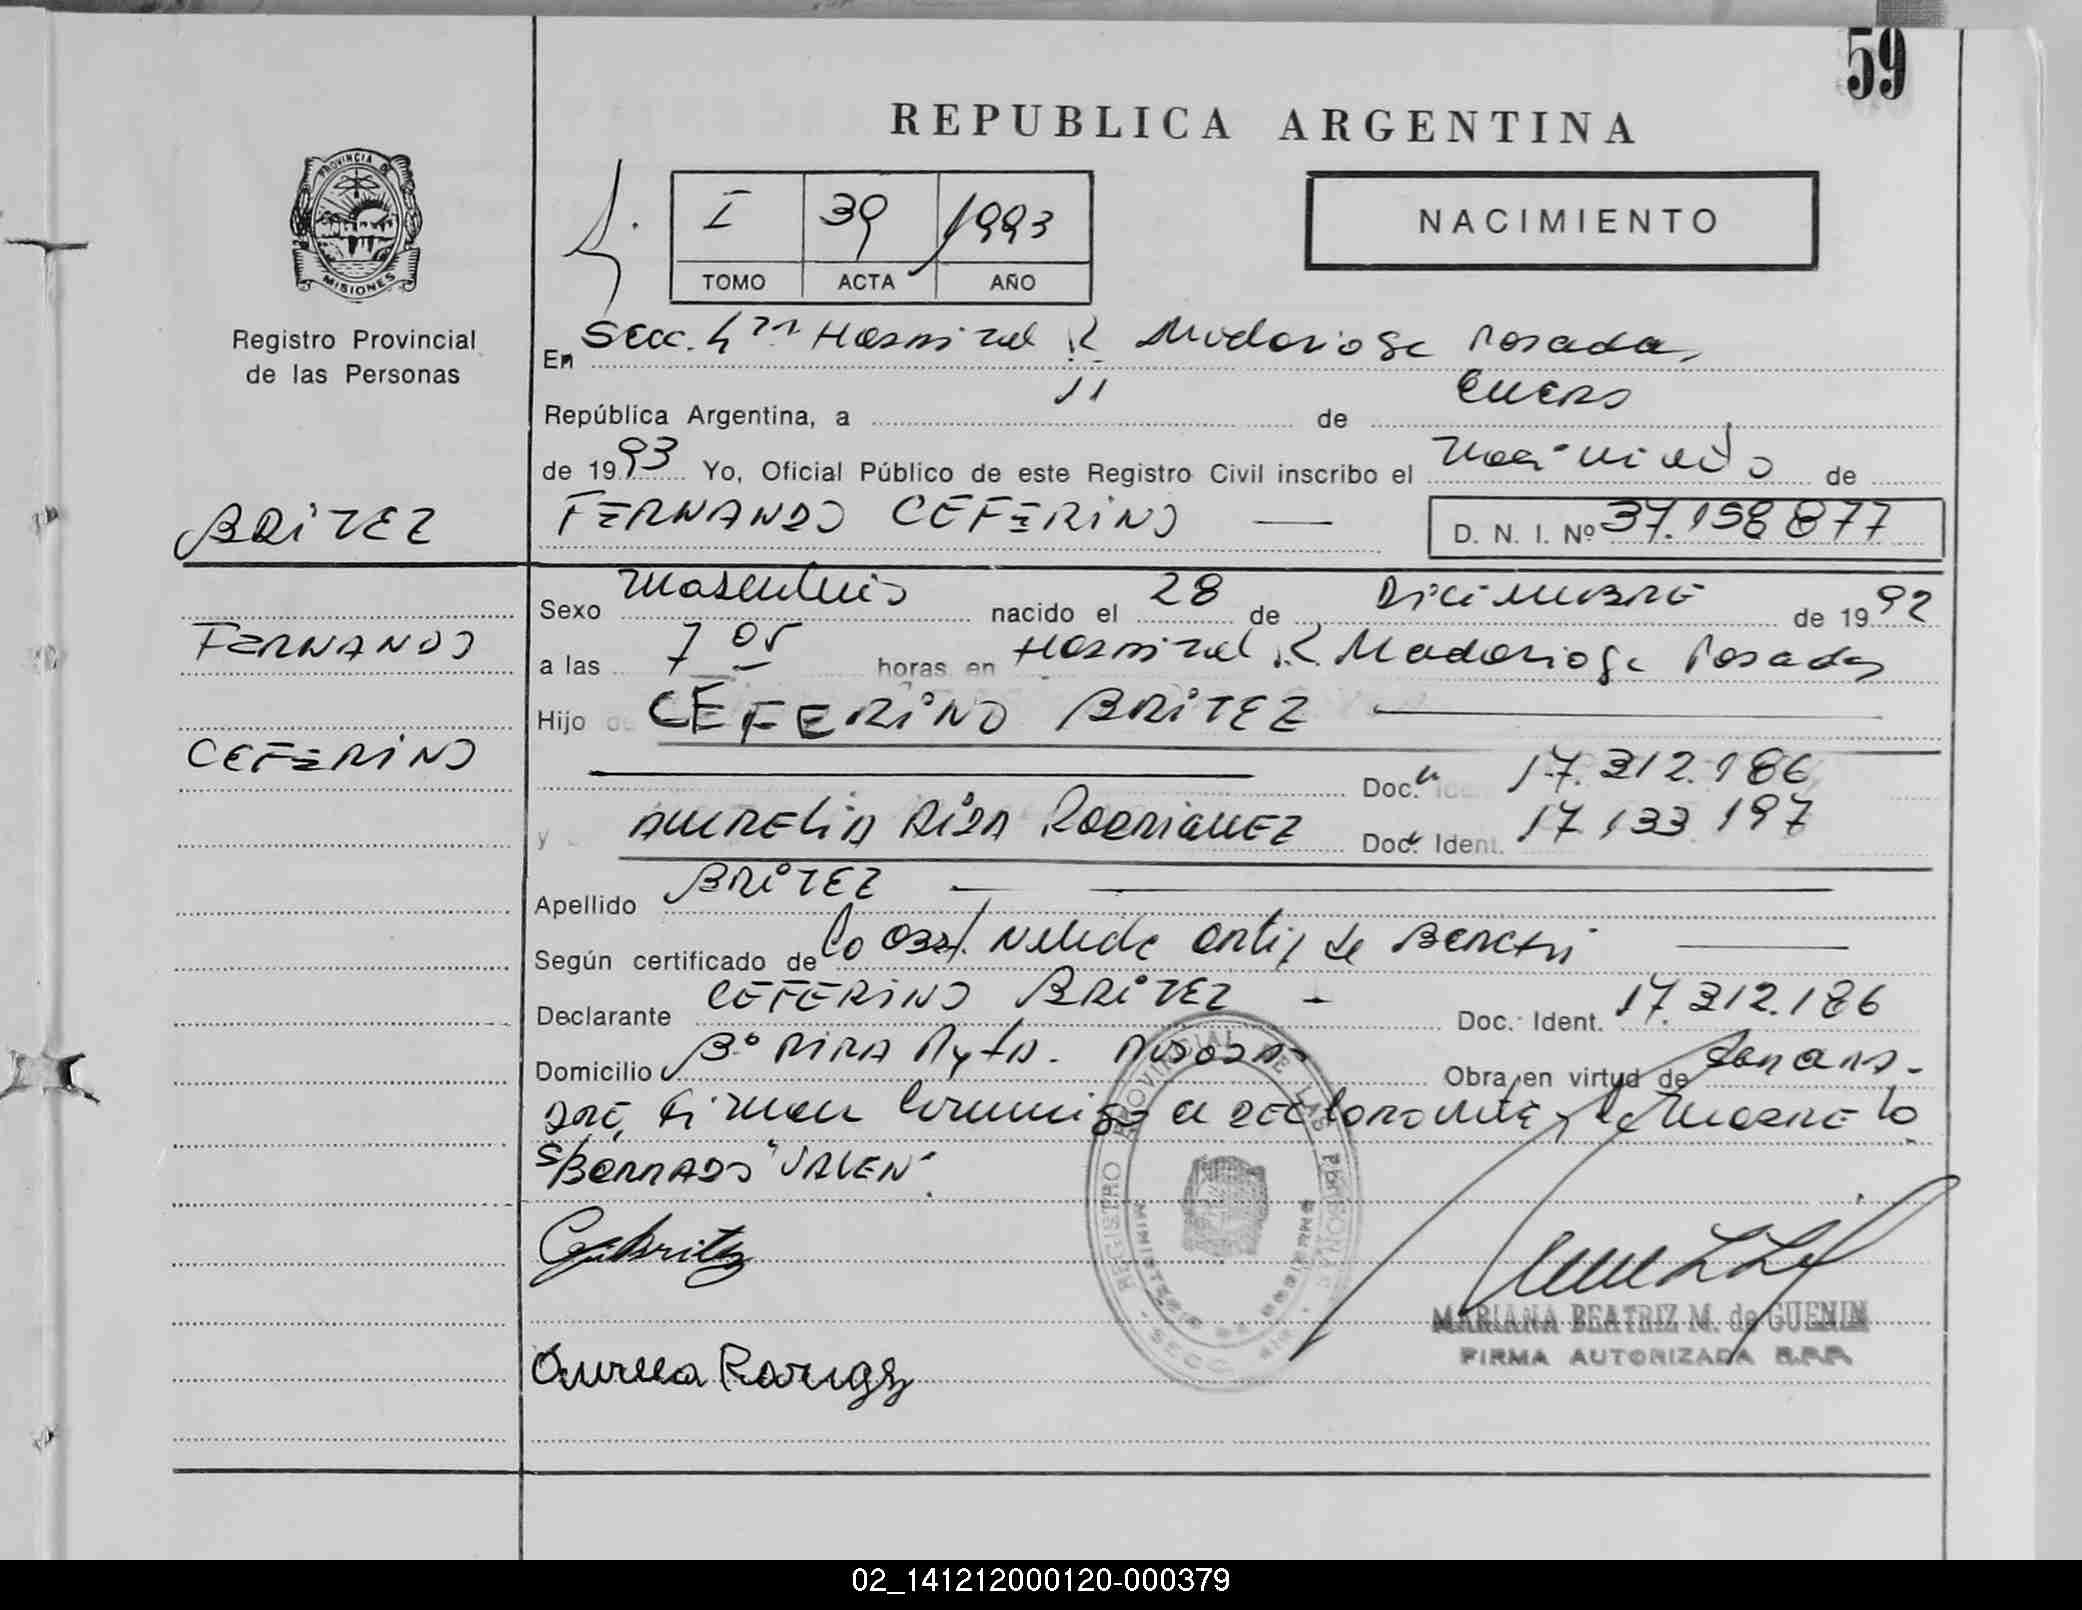 59
REPUBLICA ARGENTINA
PROVINCIA DE
MISIONES
Registro Provincial
de las Personas
I 39 1993
TOMO ACTA AÑO
NACIMIENTO
En Secc. 4ta Hospital R. Madariaga Posadas,
República Argentina, a 11 de Enero
de 1993 Yo, Oficial Público de este Registro Civil inscribo el Nacimiento de
BRITEZ
FERNANDO CEFERINO — D. N. I. Nº 37.158877
Sexo Masculino nacido el 28 de Diciembre de 1992
FERNANDO
a las 7 05 horas en Hospital R. Madariaga Posadas
Hijo de CEFERINO BRITEZ
CEFERINO
Doc. 17.312.186
y AURELIA RODRIGUEZ Doc. Ident. 17.133.197
Apellido BRITEZ
Según certificado de la Obst. Nelide Ortiz de
Declarante CEFERINO BRITEZ - Doc. Ident. 17.312.186
Domicilio Bº Obra en virtud de
Firman Conmigo el declarante y la madre lo
s/BORRADO "VALEN".
REGISTRO PROVINCIAL DE LAS PERSONAS
MINISTERIO DE GOBIERNO
MARIANA BEATRIZ M. de GUENIN
FIRMA AUTORIZADA R.P.P.
02_141212000120-000379